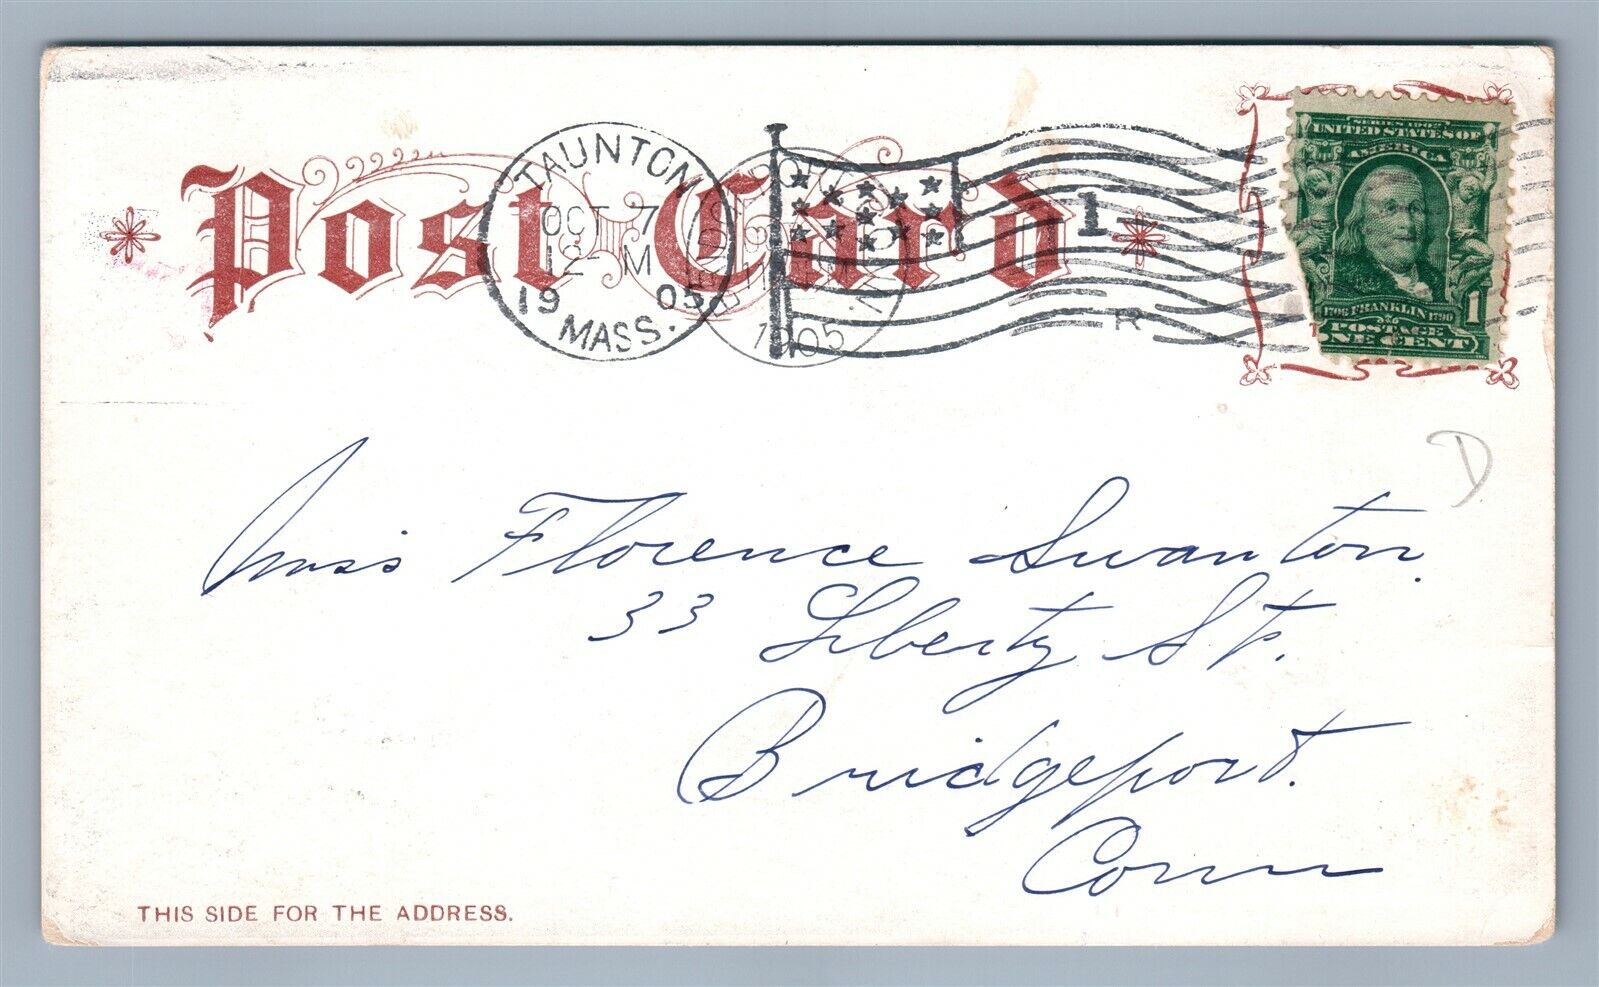 Post Card
TAUNTON
OCT 7
12- M
1905
MASS.
1
R
1905
SERIES 1902
UNITED STATES OF
AMERICA
1706 FRANKLIN 1790
1
POSTAGE
ONE CENT
D
Miss Florence Swanton.
33 Liberty St.
Bridgeport.
Conn
THIS SIDE FOR THE ADDRESS.